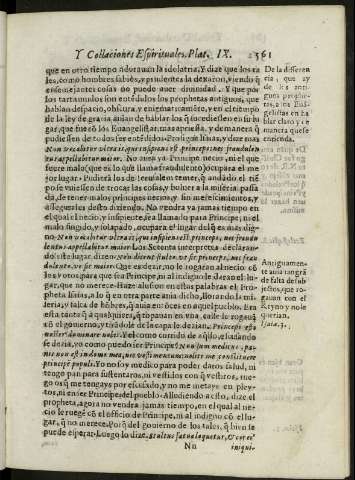 Y Collaciones Espirituales. Plat. IX. 561
que en otro tiempo adorauan la idolatria. Y dize que los ta
les, como hombres sabios, y prudentes la dexaron, viendo q̃
en semejantes cosas no puede auer diuinidad. Y que por
los tartamudos son entẽdidos los prophetas antiguos, que
hablan despacio, obscura, y enigmaticamẽte, y en el tiempo
de la ley de gracia auian de hablar los q̃ sucediessen en su lu
gar, que fue los Euangelistas mas apriessa, y de manera q̃
pudiessen de todos ser entẽdidos. Prosigue Isaias, y dize mas
Non vocabitur vltra is, qui insipiens est princeps: nec fraudulen
tus appellabitur maior. No aura ya Principe necio, ni el que
fuere malo (que es lo que llama fraudulento) ocupara el me
jor lugar. Pudiera los de Ierusalem temer, q̃ andãdo el tiẽ
po se
da, se temer malos principes necios, y sin merescimientos, y
assegurales desto diziendo. No vendra ya jamas tiempo en
el qual el necio, y insipiente, sea llamado para Principe, ni el
malo fingido, y solapado, ocupara el lugar, que es mas dig
no. Non vocabitur vltra is qui insipiens est princeps, nec fraudu
lentus appellabitur maior. Los Setenta interpretes declaran
do
dulento, ve sit maior. Que es dezir, que le rogaran al necio cõ
los votos, para que sea Principe, ni al indigno le daran el lu
gar, que no merece. Haze alusion en estas palabras el Pro
pheta Isaias, a lo q̃ en otra parte auia dicho, llorando la mi
seria, y falta de hõbres, q̃ auia entonces en aquel pueblo. Era
esta tanta q̃ a qualquiera, q̃ topauan en vna calle le rogauã
cõ el gouierno, y tirãdole de la capa le dezian. Princeps esto
noster dominare nostri. Y el como corrido de aq̃llo, escusando
se dezia, yo como puedo ser Principe? Non sum medicus, pa
nis non est in domo mea, nec vestimentum: nolite me constituere
principẽ populi. Yo no soy medico para poder daros salud, ni
tengo pan para sustentaros, ni vestidos con q̃ vestiros, rue
go os q̃ me tengays por escusado, y no me metays en pley-
tos, ni en ser Principe del pueblo. Alludiendo a esto, dize el
propheta, agora no vendra jamas tiempo, en el qual al ne
cio le ruegẽ cõ el officio de Principe, ni al indigno cõ el lu-
gar, que no merece. Porq̃ del gouierno de los tales, q̃ bien se
puede esperar. Luego lo dize. Stultus fatua loquetur, & cor ei'
Nn iniqui-
De la differen
cia, que ay
de los antiguos
prophetas, a los Euã
gelistas en ha
blar claro, y
manera que se
entienda.
Antiguamen-
te auia tan grã
de falta de sub
jectos, que ro-
gauan con el
Reyno y no le
querian.
Isaia. 3.